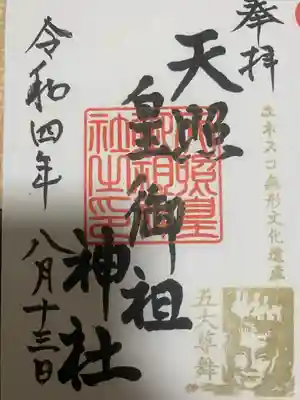 奉拝
ユネスコ無形文化遺産
五大尊舞
天照
皇御祖
神社
令和四年
八月十三日